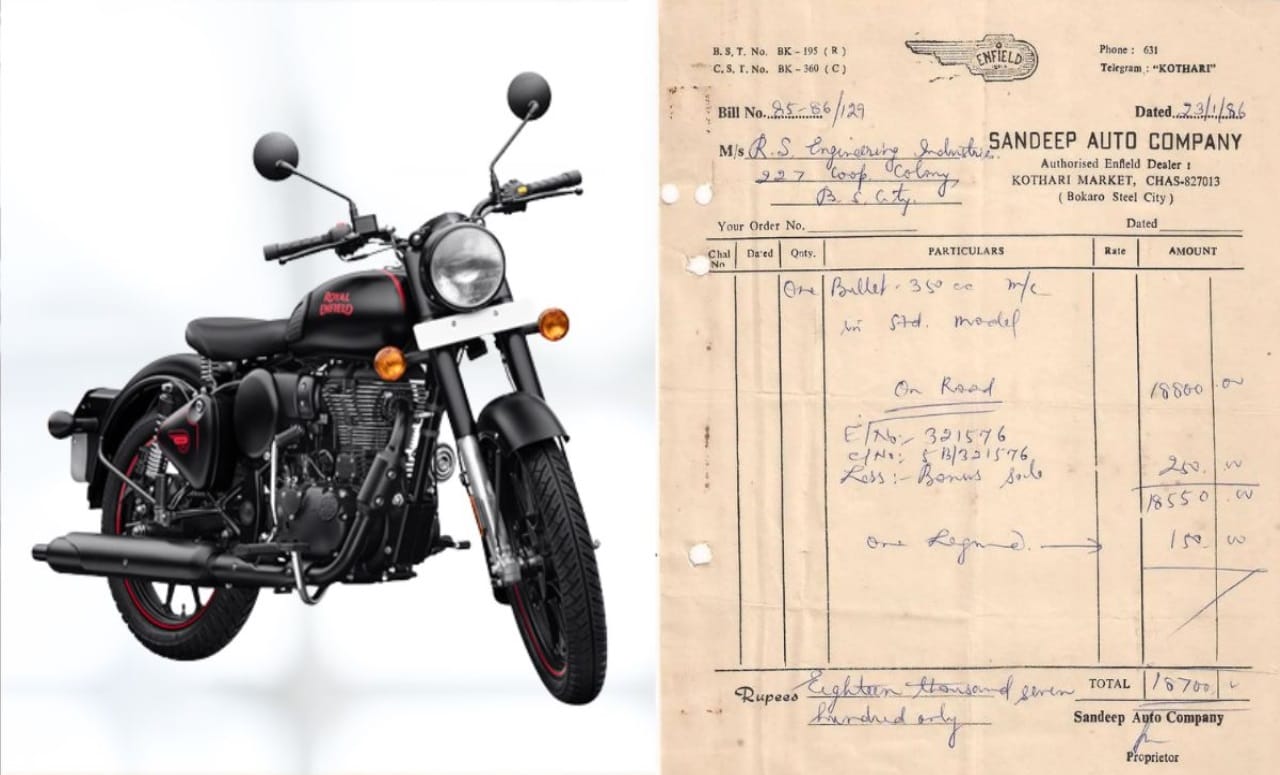 ROYAL
ENFIELD
B.S.T. No. BK - 195 ( R )
C.S.T. No. BK - 360 ( C )
ENFIELD
INDIA
Phone : 631
Telegram : "KOTHARI"
Bill No. 85-86/129
Dated 23/1/86
M/s R.S. Engineering Industries.
227 Coop. Colony,
B.S. City.
SANDEEP AUTO COMPANY
Authorised Enfield Dealer :
KOTHARI MARKET, CHAS-827013
( Bokaro Steel City )
Your Order No.
Dated
Chal No Dated Qnty. PARTICULARS Rate AMOUNT
One Bullet - 350 cc m/c
in Std. model
On Road 18800.00
E/No:- 321576
C/No:- 5B/321576
Less:- Bonus sale 250.00
18550.00
one Legguard. → 150.00
Rupees Eighteen thousand seven
hundred only
TOTAL 18700
Sandeep Auto Company
Proprietor